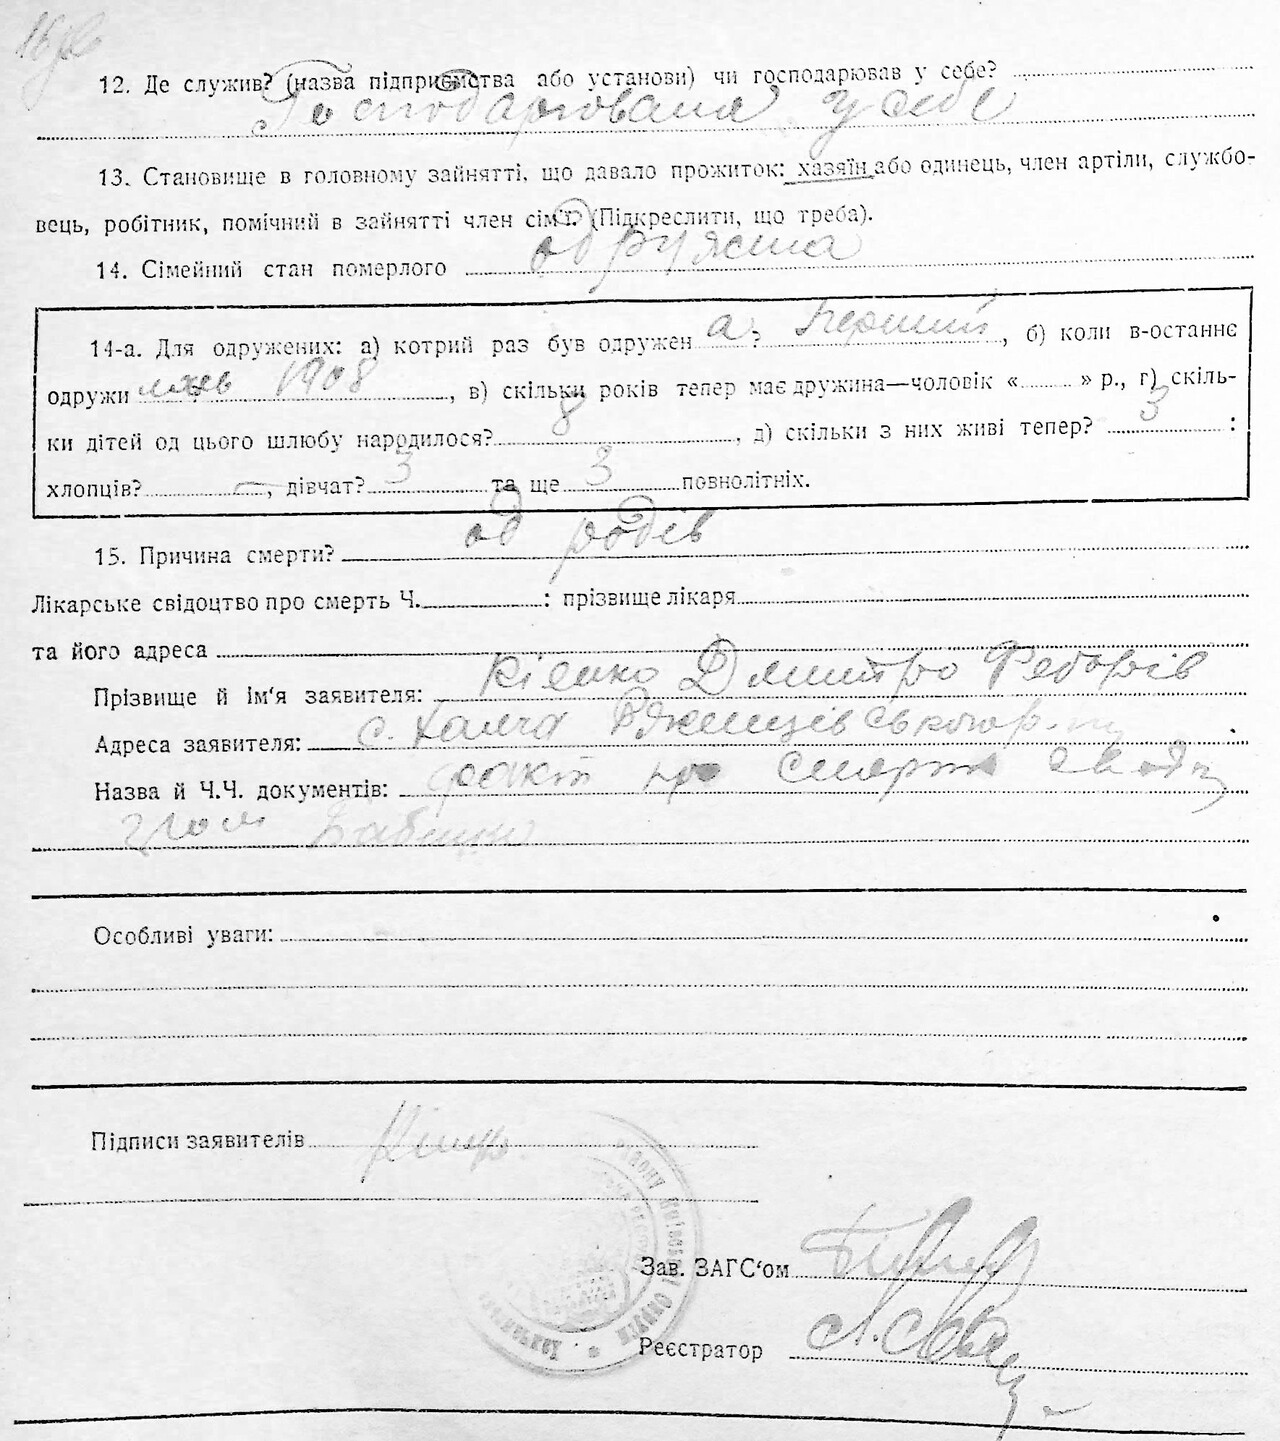 12. Де служив? (назва підприємства або установи) чи господарював у себе?
Господарювала у себе
13. Становище в головному зайнятті, що давало прожиток: хазяїн або одинець, член артіли, службо-
вець, робітник, помічний в зайнятті член сім'ї? (Підкреслити, що треба).
14. Сімейний стан померлого одружена
14-а. Для одружених: а) котрий раз був одружен а? перший, б) коли в-останнє
одружи лась 1908, в) скільки років тепер має дружина—чоловік « » р., г) скіль-
ки дітей од цього шлюбу народилося? 8, д) скільки з них живі тепер? 3 :
хлопців? —, дівчат? 3 та ще 3 повнолітніх.
15. Причина смерти? од родів
Лікарське свідоцтво про смерть Ч. : прізвище лікаря
та його адреса
Прізвище й ім'я заявителя: Дмитро Федорів
Адреса заявителя: с.
Назва й Ч.Ч. документів: факт про смерть
Особливі уваги:
Підписи заявителів
Зав. ЗАГС'ом
Реєстратор